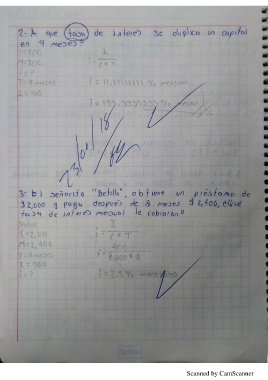 2.- A que tasa de interés se duplica un capital
en 9 meses?
C=800
i=?
T=9 meses
I=800
i= I / C*T
i= 11.11111111 % mensual
i= 133.3333333 % anual
23/01/18
3.- El señorita "Betillo", obtiene un préstamo de
$2,000 y paga después de 8 meses $2,400, ¿Que
tasa de interés mensual le cobraron?
M=2,400
T=8 meses
I=400
i=?
i= I / C*T
i= 400 / 2,000*8
i= 2.5% mensuales
Scanned by CamScanner